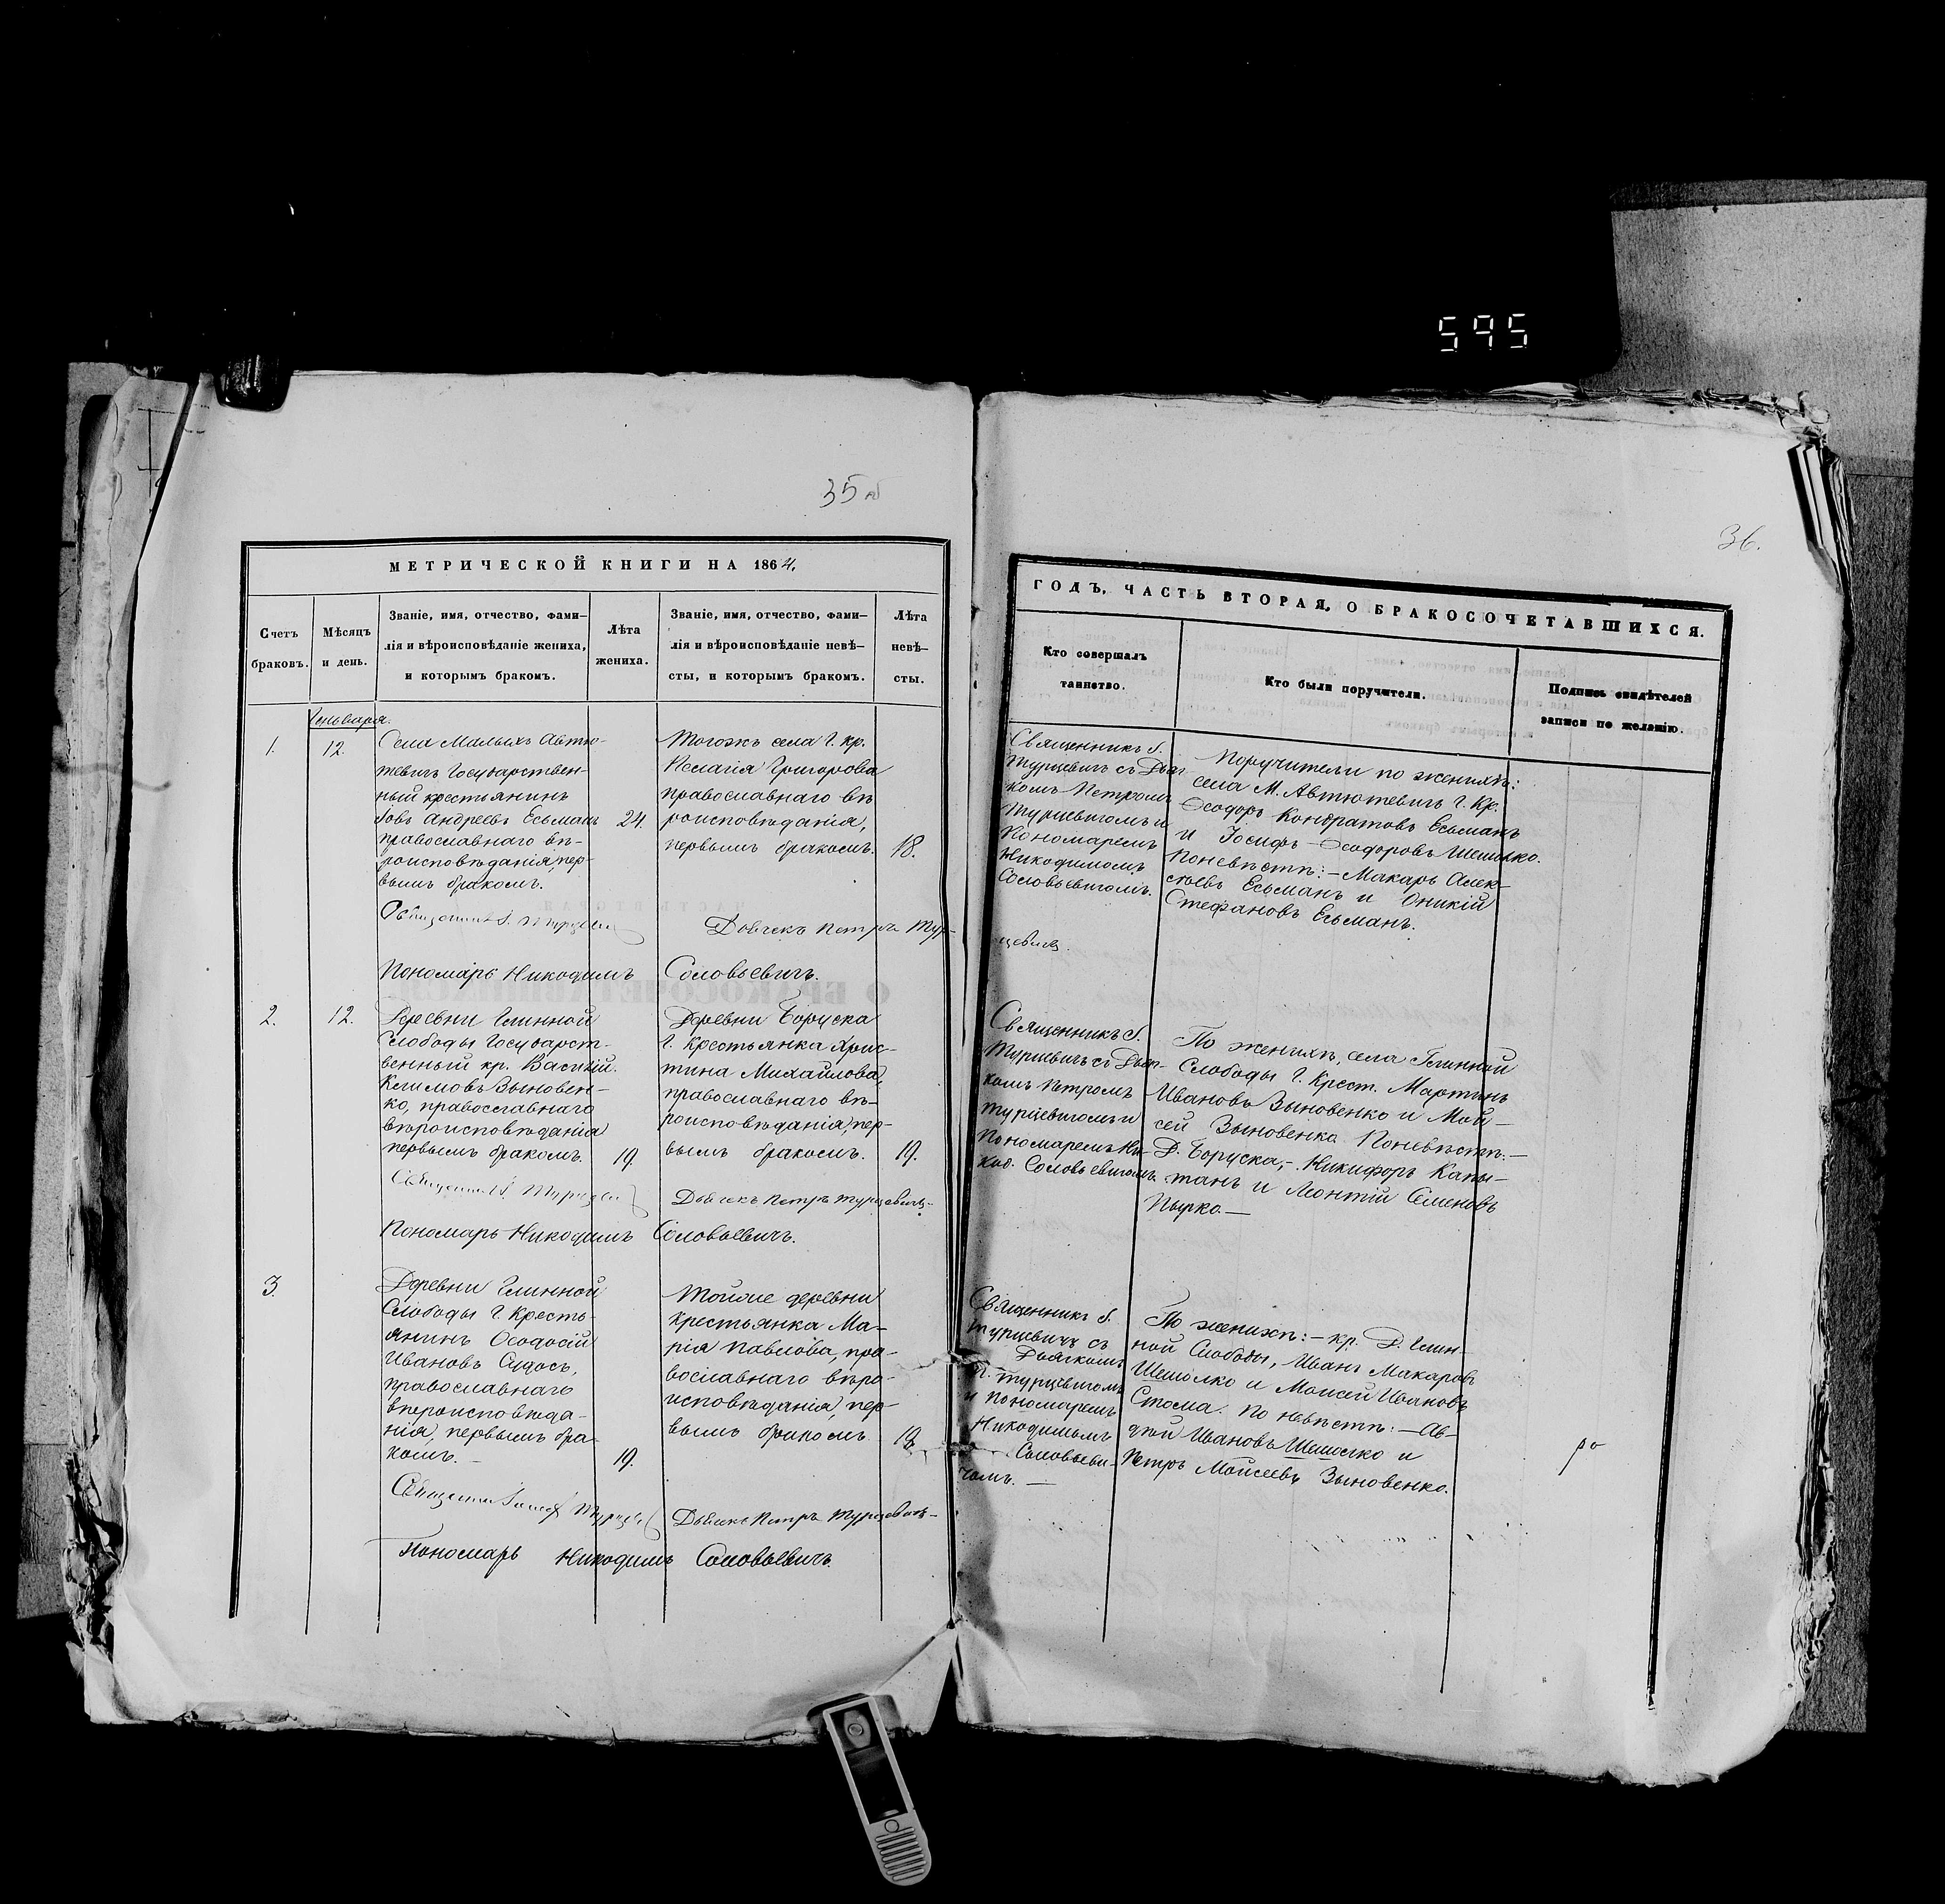 595
35 об
36.
МЕТРИЧЕСКОЙ КНИГИ НА 1864,
Счетъ браковъ.
Мѣсяцъ и день.
Званіе, имя, отчество, фами-
лія и вѣроисповѣданіе жениха,
и которымъ бракомъ.
Лѣта жениха.
Званіе, имя, отчество, фами-
лія и вѣроисповѣданіе невѣ-
сты, и которымъ бракомъ.
Лѣта невѣ-
сты.
ГОДЪ, ЧАСТЬ ВТОРАЯ, О БРАКОСОЧЕТАВШИХСЯ.
Кто совершалъ
таинство.
Кто были поручители.
Подпись свидѣтелей
записи по желанію.
Генваря.
1.
12.
Села Малыхъ Автю-
тевичъ Государствен-
ный крестьянинъ
Іовъ Андреевъ Есьманъ
православнаго вѣ-
роисповѣданія, пер-
вымъ бракомъ.
24.
Тогожъ села Г. кр.
Пелагія Григорова
православнаго вѣ
роисповѣданія,
первымъ бракомъ.
18.
Священникъ І.
Турцевичъ съ Дья-
комъ Петромъ
Турцевичомъ и
Пономаремъ
Никодимомъ
Соловьевичомъ.
Поручители по женихѣ:
села М. Автютевичъ Г. Кр.
Ѳеодоръ Кондратовъ Есьманъ
и Іосифъ Ѳеодоровъ Шешолко.
По невѣстѣ: — Макаръ Алек-
сѣевъ Есьманъ и Оникій
Стефановъ Есьманъ.
Священникъ І. Турцевич
Дьячекъ Петръ Тур-
цевичъ.
Пономарь Никодимъ Соловьевичъ.
2.
12.
Деревни Глинной
Слободы Государст-
венный кр. Василій
Климовъ Зыновен-
ко, православнаго
вѣроисповѣданія
первымъ бракомъ.
19.
Деревни Боруска
Г. Крестьянка Хрис-
тина Михайлова,
православнаго вѣ-
роисповѣданія, пер-
вымъ бракомъ.
19.
Священникъ І.
Турцевичъ съ Дья-
комъ Петромъ
Турцевичомъ и
Пономаремъ Ни-
код. Соловьевичомъ.
По женихѣ, села Глинной
Слободы Г. Крест. Мартинъ
Ивановъ Зыновенко и Мои-
сей Зыновенко. По невѣстѣ: —
Д. Боруска, — Никифоръ Капы-
танъ и Леонтій Семеновъ
Пырко. —
Священникъ І. Турцевич
Дьячекъ Петръ Турцевичъ. —
Пономарь Никодимъ Соловьевичъ.
3.
Деревни Глинной
Слободы Г. Кресть-
янинъ Ѳеодосій
Ивановъ Судосъ,
православнаго
вѣроисповѣда-
нія, первымъ бра-
комъ. —
19.
Тойже деревни
крестьянка Ма-
рія Павлова, пра-
вославнаго вѣро-
исповѣданія, пер-
вымъ бракомъ.
Священникъ І.
Турцевичъ съ
Дьячкомъ
П. Турцевичомъ
и Пономаремъ
Никодимомъ
Соловьеви-
чомъ. —
По женихѣ: — кр. Д. Глин-
ной Слободы, Иванъ Макаровъ
Шешолко и Моисей Ивановъ
Стома. По невѣстѣ: — Ав-
дѣй Ивановъ Шешолко и
Петръ Моисеевъ Зыновенко.
Священникъ Турцевич
Дьячекъ Петръ Турцевичъ —
Пономарь Никодимъ Соловьевичъ.